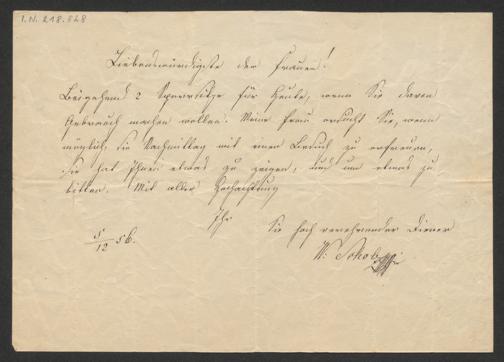 I.N. 218.828
Liebenswürdigste der Frauen!
Beigehend 2 Sperrsitze für heute, wenn Sie davon
Gebrauch machen wollen. Meine Frau ersucht Sie, wenn
möglich, sie Nachmittag mit einem Besuch zu erfreuen,
sie hat Ihnen etwas zu zeigen, und um etwas zu
bitten. Mit aller Hochachtung
Ihr Sie hoch verehrender Diener
5/12 56. W: